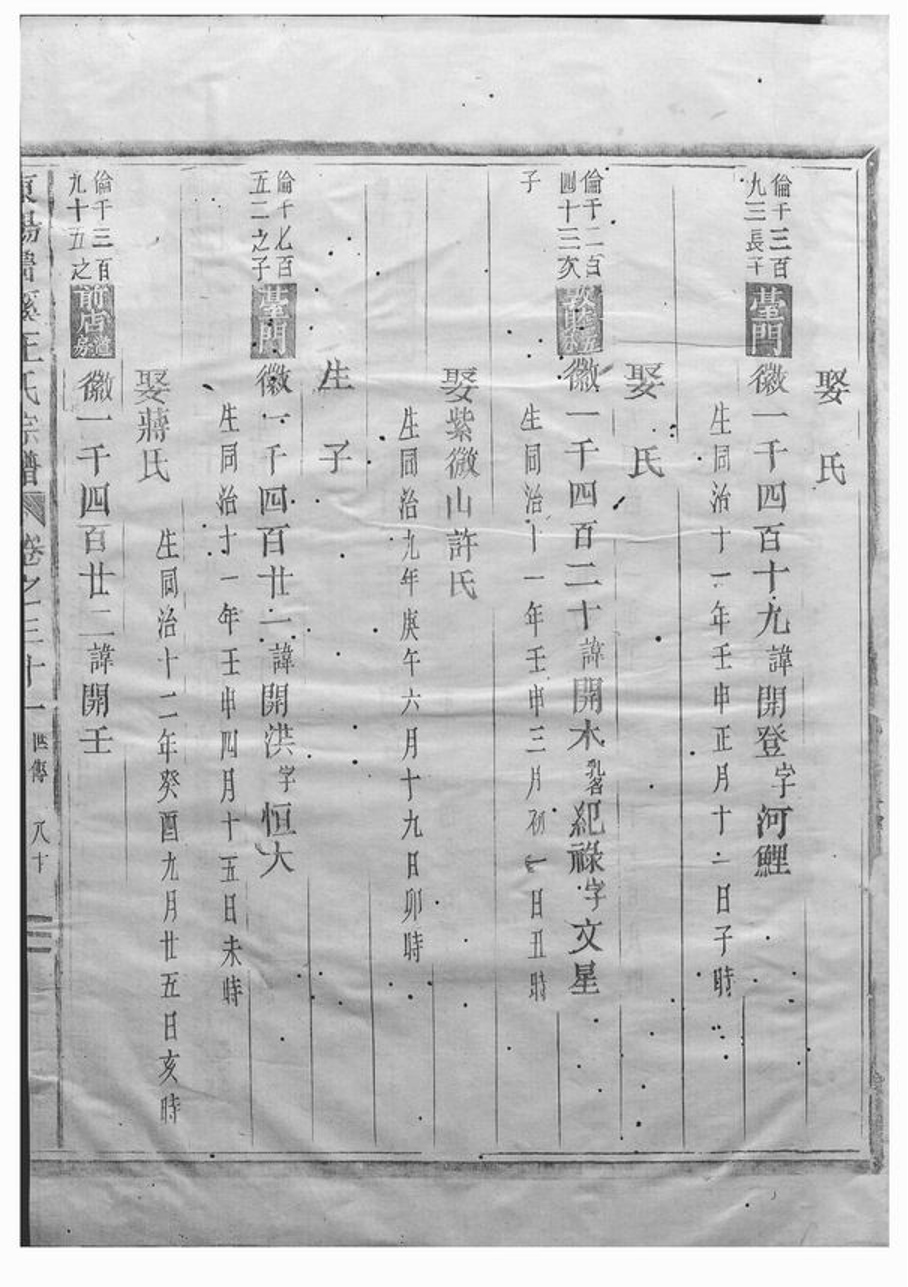 娶　氏
倫千三百
九三長子
臺門
徽一千四百十九諱開登字河鯉
生同治十一年壬申正月十一日子時
娶　氏
倫千二百
四十三次
子
徽一千四百二十諱開木乳名紀祿字文星
生同治十一年壬申三月初一日丑時
娶紫微山許氏
生同治九年庚午六月十九日卯時
生　子
倫千七百
五二之子
臺門
徽一千四百廿一諱開洪字恒大
生同治十一年壬申四月十五日未時
娶蔣氏
生同治十二年癸酉九月廿五日亥時
倫千三百
九十五之
前店
房
徽一千四百廿二諱開壬
王氏宗譜
卷之三十一
世傳
八十